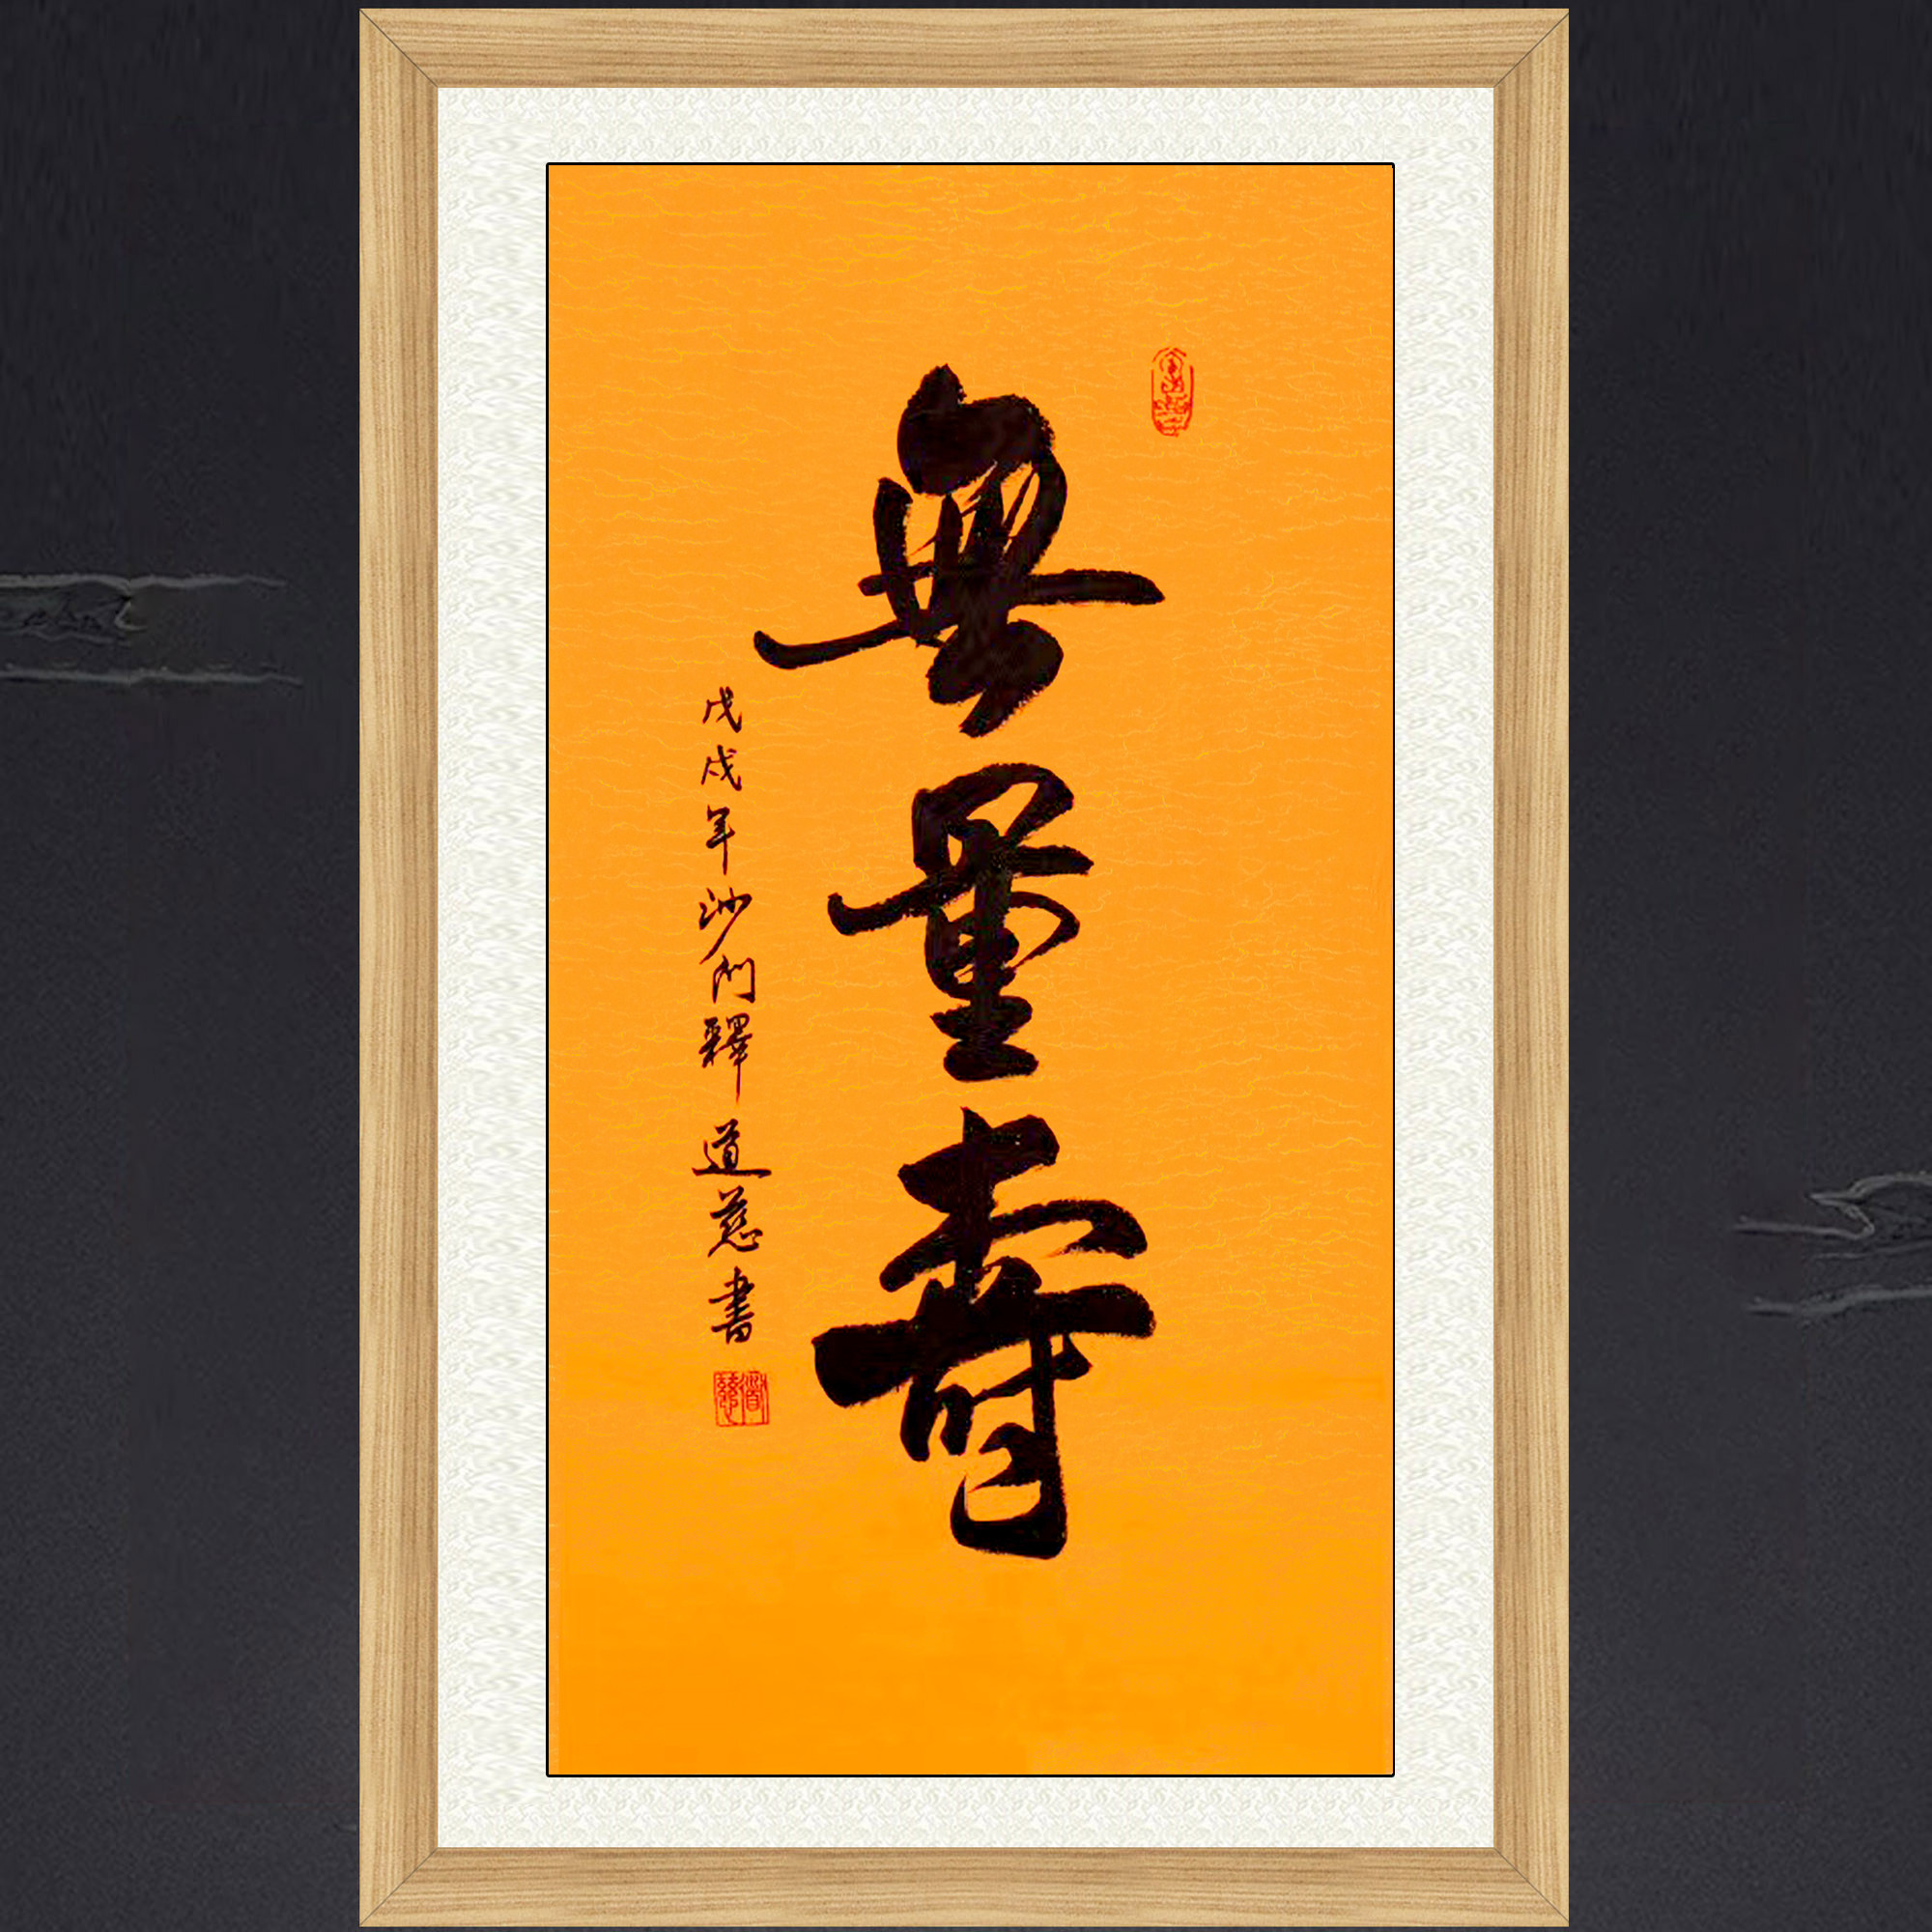 無量壽
戊戌年沙門釋道慈書
道慈